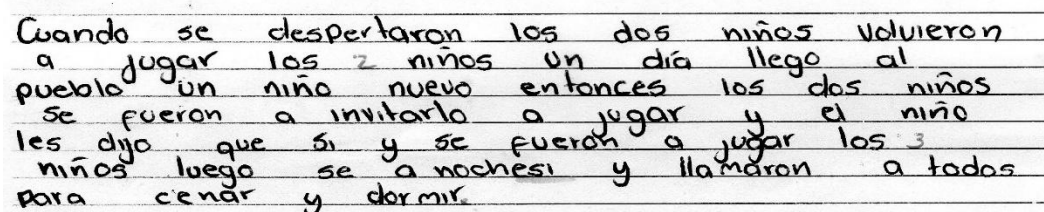 Cuando se despertaron los dos niños volvieron
a jugar los 2 niños un día llego al
pueblo un niño nuevo entonces los dos niños
se fueron a invitarlo a jugar y el niño
les dijo que si y se fueron a jugar los 3
niños luego se a nochesi y llamaron a todos
para cenar y dormir.